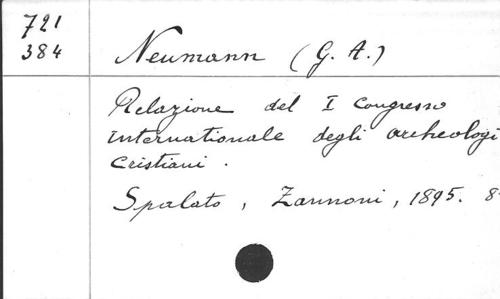 721
384
Neumann (G. A.)
Relazione del I Congresso
internationale degli archeologi
cristiani.
Spalato, Zannoni, 1895. 8